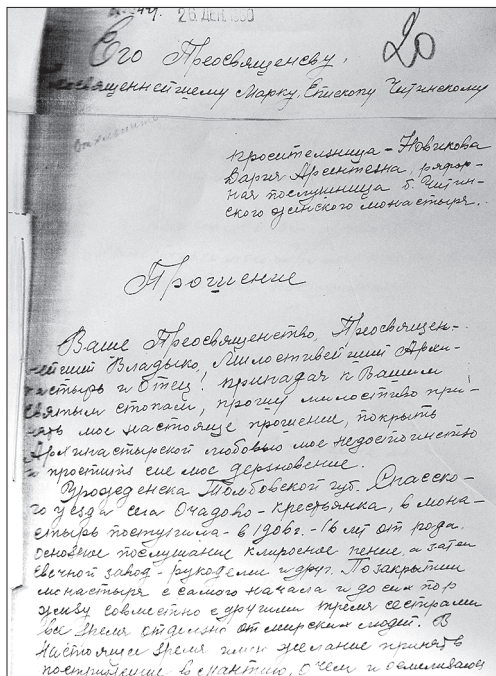 26 ДЕК 1930
20
Его Преосвященству,
Преосвященнейшему Марку, Епископу Читинскому
просительница - Новикова
Дария Арсентевна, рясофор-
ная послушница б. Читин-
ского женского монастыря.
Прошение
Ваше Преосвященство, Преосвящен-
нейший Владыко, Милостивейший Архи-
пастырь и Отец! припадая к Вашим
святым стопам, прошу милостиво при-
нять мое настояще прошение, покрыть
Архипастырской любовью мое недостоинство
и простить сие мое дерзновение.
Урожденка Тамбовской губ. Спасско-
го уезда села Очадово - крестьянка, в мона-
стырь поступила - в 1906 г. - 16 лет от рода.
Основное послушание клиросное пение, а затем
свечной завод - рукоделии и друг. По закрытии
монастыря с самого начала и до сих пор
живу совместно с другими тремя сестрами
все время отдельно от мирских людей. В
настоящее время имея желание принять
пострижение в мантию, о чем и осмеливаюсь